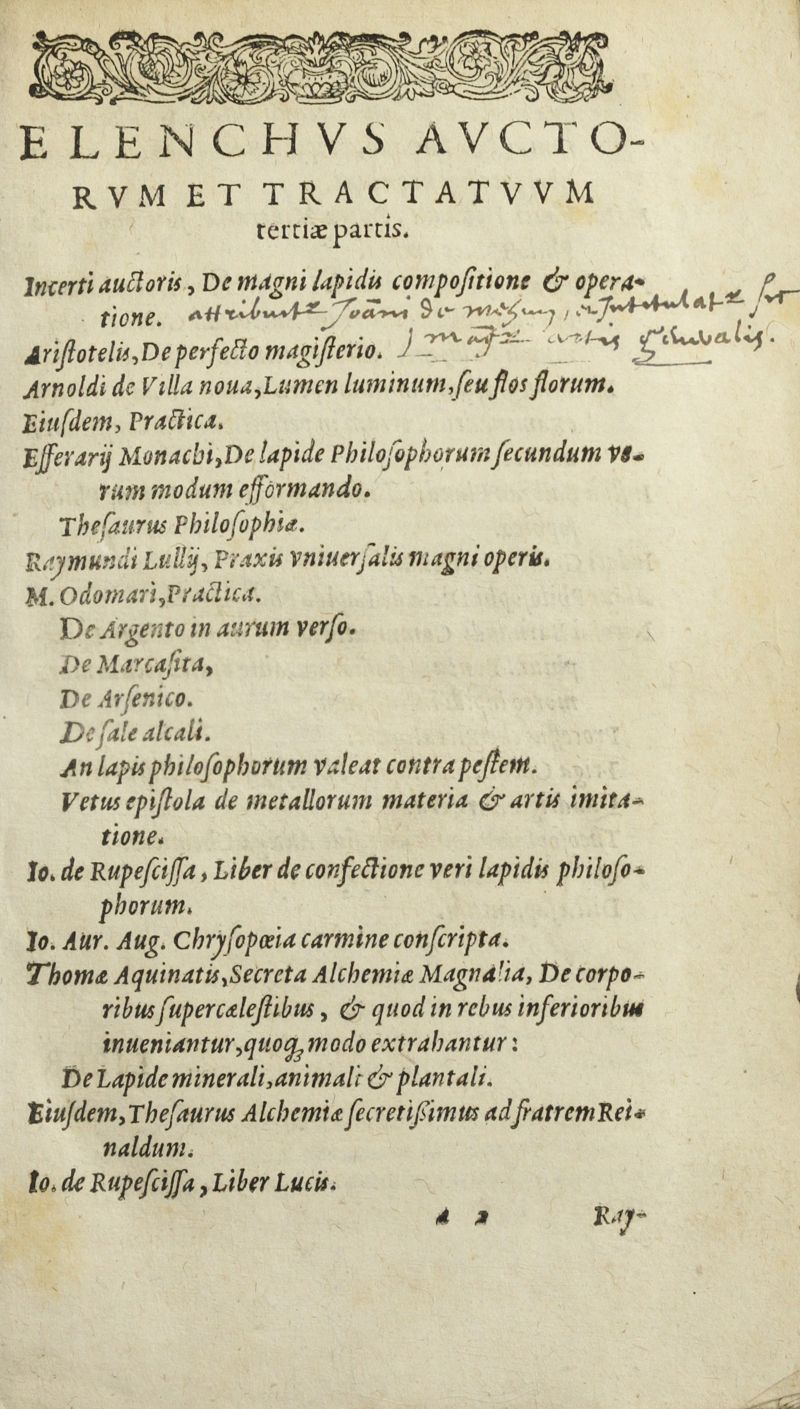 ELENCHVS AVCTO-
RVM ET TRACTATVVM
tertiæ partis.
Incerti auctoris, De magni lapidis compositione & opera-
tione. attribuit Joāni de
Aristotelis, De perfecto magisterio. artis
Arnoldi de Villa noua, Lumen luminum, seu flos florum.
Eiusdem, Practica.
Efferarij Monachi, De lapide Philosophorum secundum ve-
rum modum efformando.
Thesaurus Philosophiæ.
Raymundi Lullij, Praxis vniuersalis magni operis.
M. Odomari, Practica.
De Argento in aurum verso.
De Marcasita,
De Arsenico.
De sale alcali.
An lapis philosophorum valeat contra pestem.
Vetus epistola de metallorum materia & artis imita-
tione.
Io. de Rupescissa, Liber de confectione veri lapidis philoso-
phorum.
Io. Aur. Aug. Chrysopœia carmine conscripta.
Thomæ Aquinatis, Secreta Alchemiæ Magnalia, De corpo-
ribus supercælestibus, & quod in rebus inferioribus
inueniantur, quoq; modo extrahantur:
De Lapide minerali, animali & plantali.
Eiusdem, Thesaurus Alchemiæ secretissimus ad fratrem Rei-
naldum.
Io. de Rupescissa, Liber Lucis.
A 2 Ray-